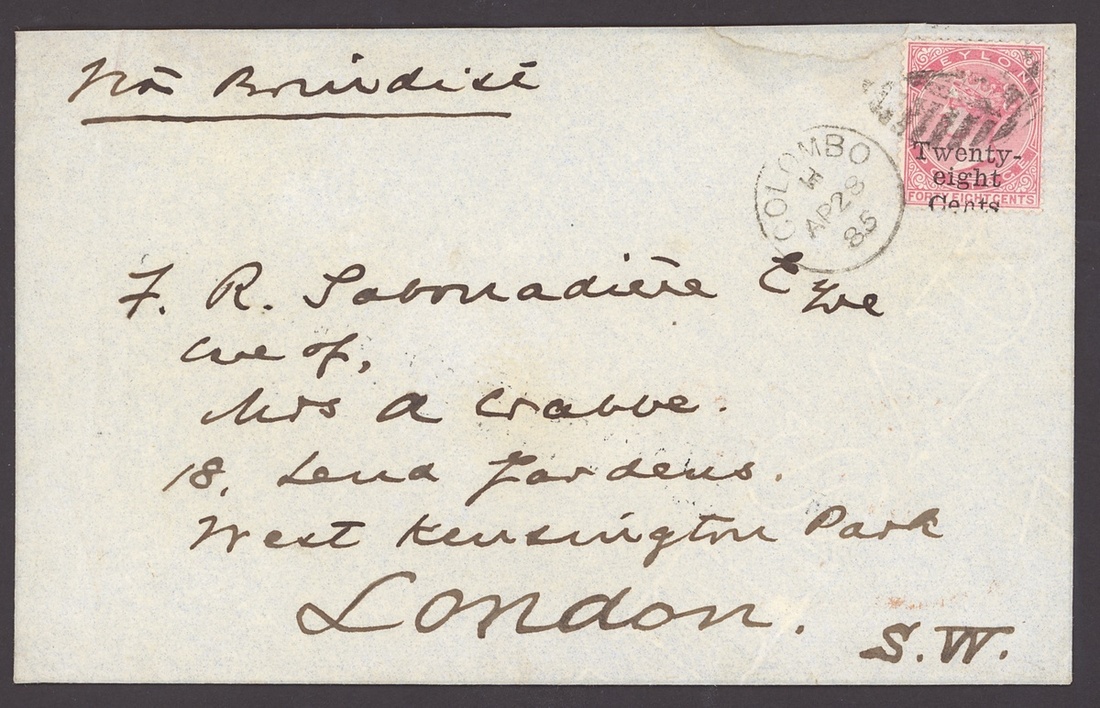 Via Brindisi
CEYLON
Twenty-
eight
Cents
FORTY EIGHT CENTS
COLOMBO
H
AP 28
85
F. R. Sabonadière Esqre
Care of,
Mrs A Crabbe.
18, Lena Gardens.
West Kensington Park
London.
S.W.